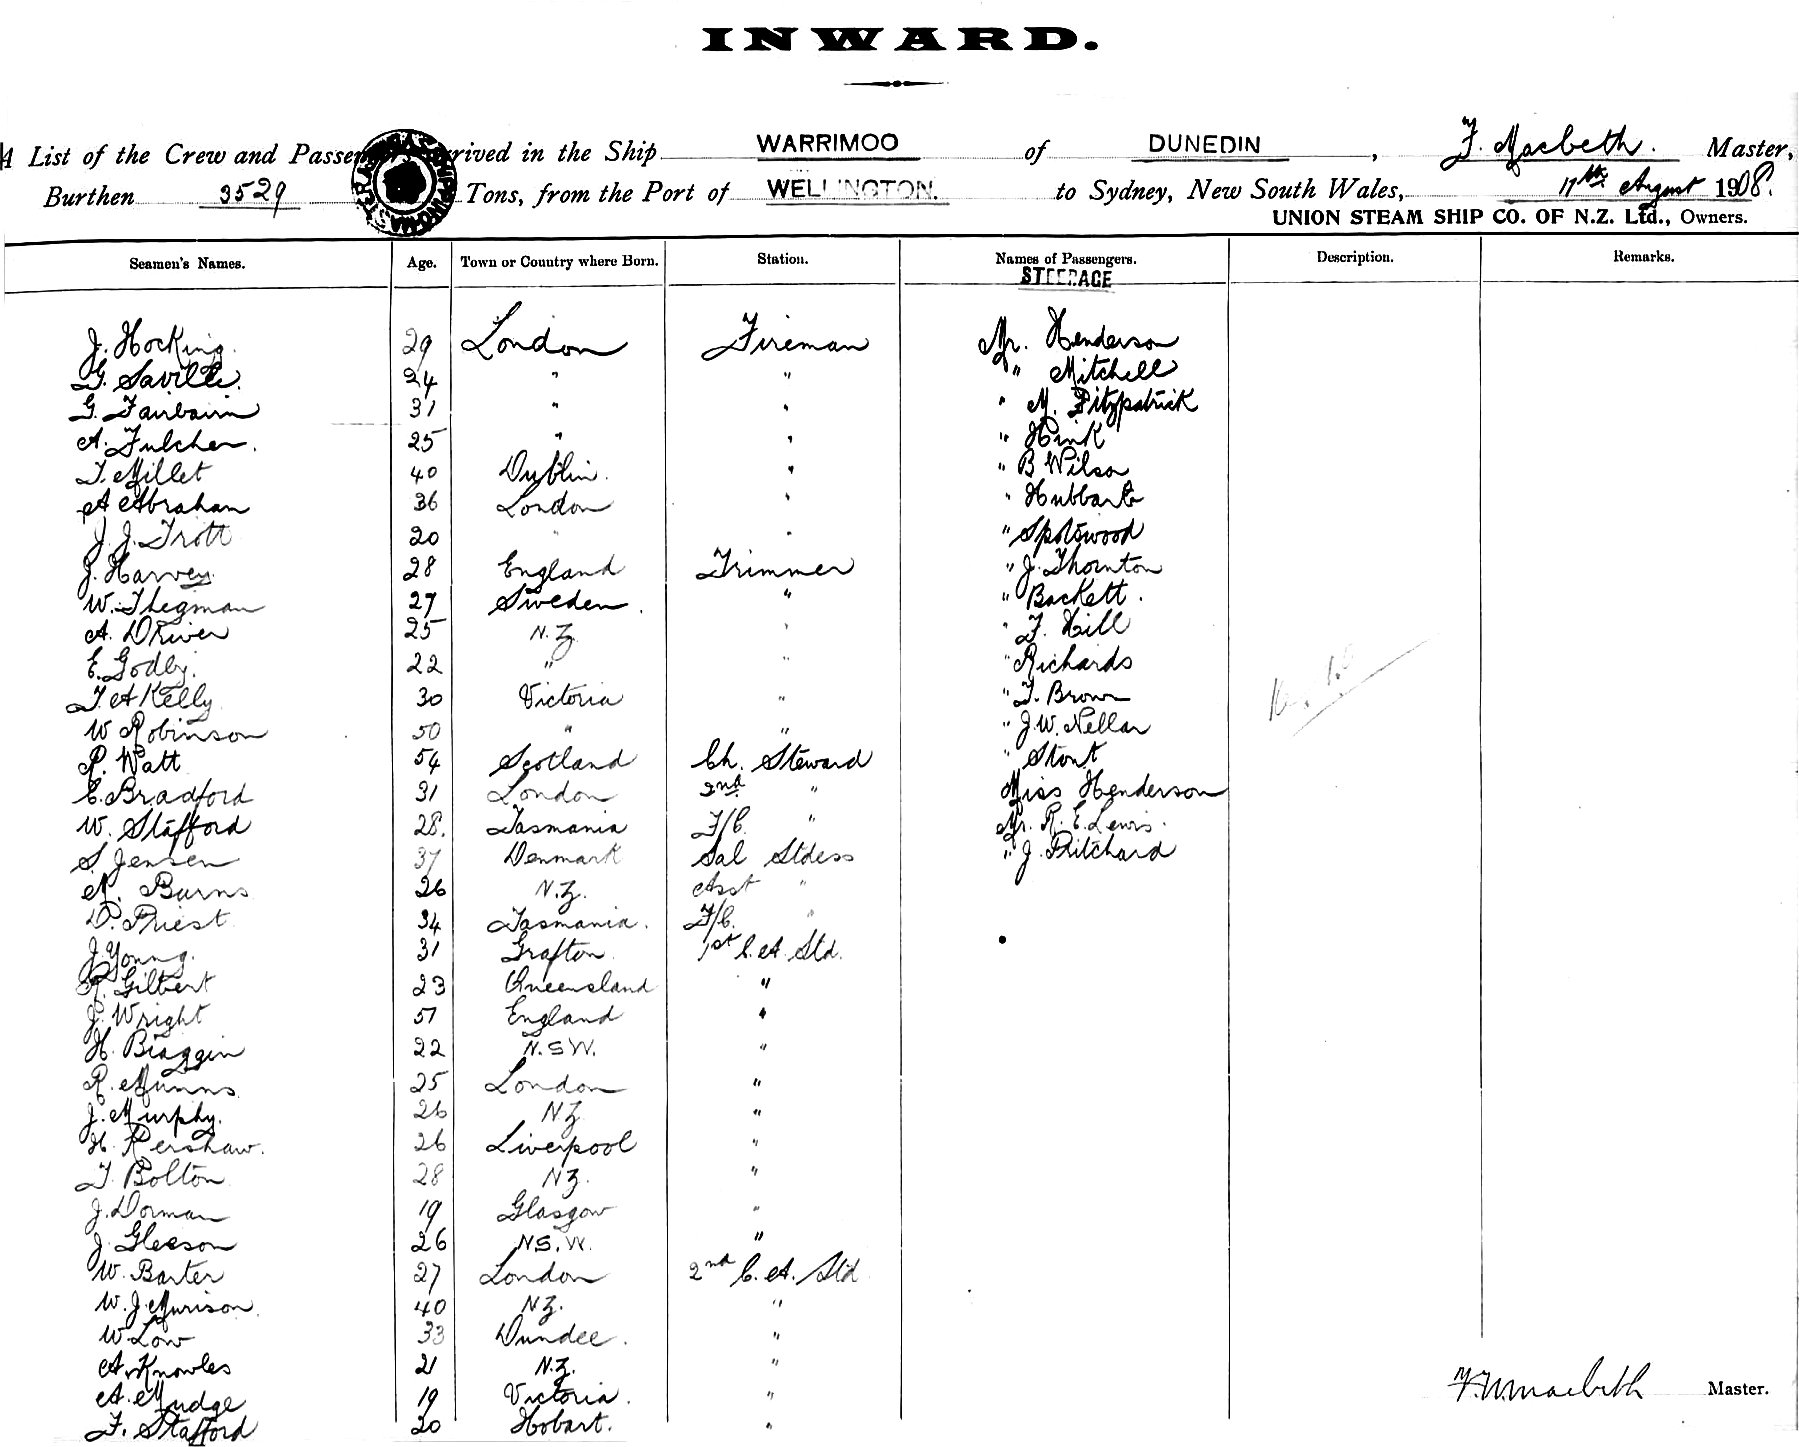 INWARD.
A List of the Crew and Passengers arrived in the Ship WARRIMOO of DUNEDIN, F. Macbeth. Master,
Burthen 3529 Tons, from the Port of WELLINGTON. to Sydney, New South Wales, 17th August 1908.
UNION STEAM SHIP CO. OF N.Z. Ltd., Owners.
Seamen's Names. Age. Town or Country where Born. Station. Names of Passengers. Description. Remarks.
STEERAGE
J. Hocking. 29 London Fireman Mr. Henderson
G. Saville. 24 " " " Mitchell
G. Fairbairn 31 " " " M. Fitzpatrick
A. Fulcher. 25 " " " Hink
T. Millet 40 Dublin. " " B Wilson
A Abraham 36 London " " Hubbard
J. J. Trott 20 " " " Spotswood
J. Harvey. 28 England Trimmer " J. Thornton
W. Thegman 27 Sweden. " " Backett.
A. Driver 25 N.Z. " " F. Hill
E. Godby. 22 " " " Richards
T. A Kelly 30 Victoria " " T. Brown
W Robinson 50 " " " J. W. Nellar
R. Watt 54 Scotland Ch. Steward " Stont
E. Bradford 31 London 2nd " Miss Henderson
W. Stafford 28. Tasmania F/C. " Mr. R. E. Lewis.
S. Jensen 37 Denmark Sal Stdess " J. Pritchard
N. Burns 26 N.Z. Asst "
D. Priest 34 Tasmania. F/C. "
J. Young. 31 Grafton 1st C. A. Std.
R. Gilbert 23 Queensland "
J. Wright 51 England "
H. Biaggin 22 N.S.W. "
R. Munns. 25 London "
J. Murphy. 26 NZ "
H. Kershaw. 26 Liverpool "
T. Bolton 28 NZ. "
J. Dorman 19 Glasgow "
J. Gleeson 26 NS.W. "
W. Barter 27 London 2nd C. A. Std
W. J. Murison 40 NZ. "
W Low 33 Dundee. "
A. Knowles 21 N.Z. "
A. Mudge 19 Victoria. "
F. Stafford 20 Hobart. "
Master.